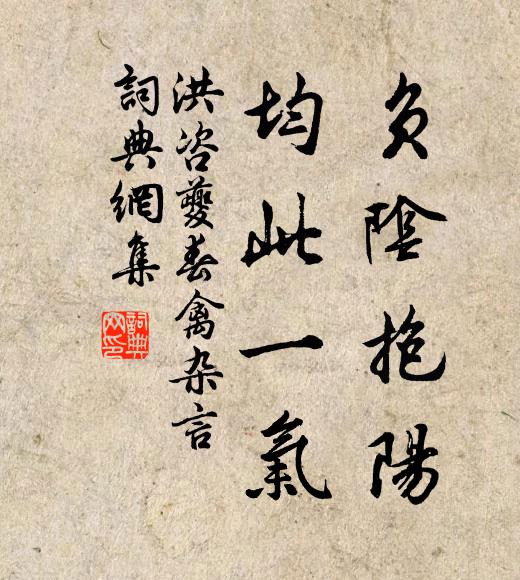 负陰抱陽
均此一氣
洪咨夔春禽杂言
詞典網集
詞典
网印